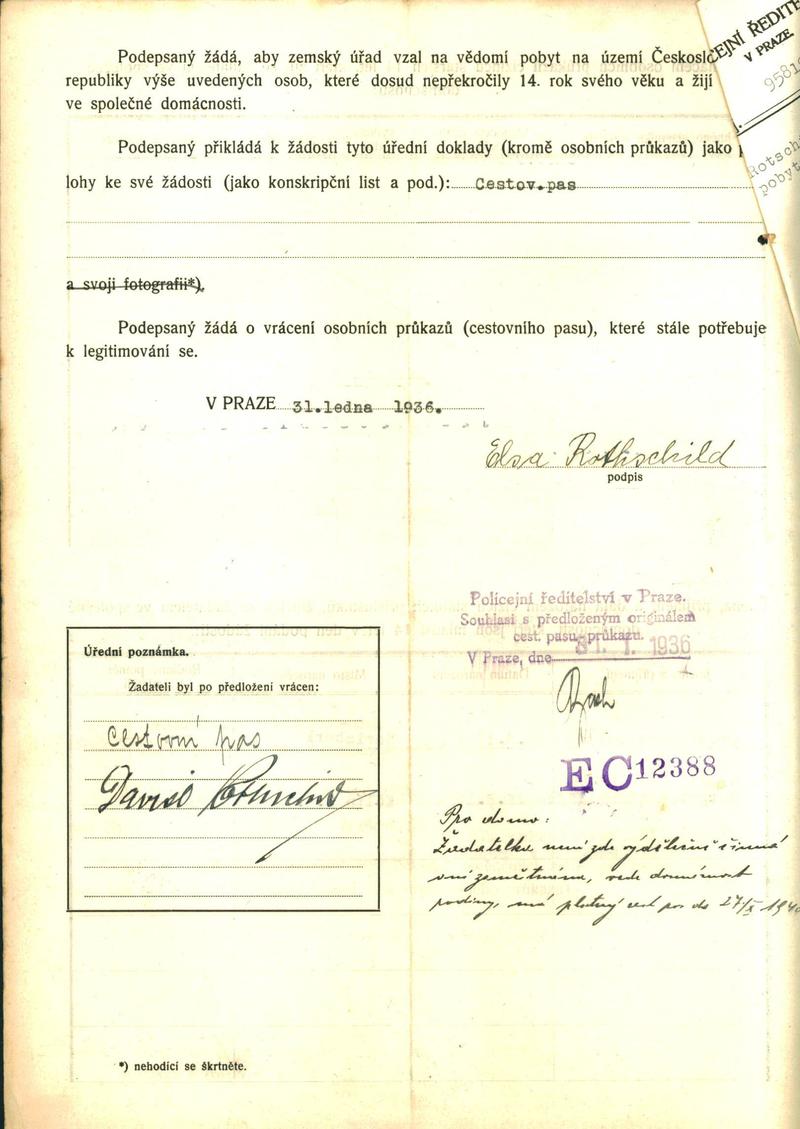 Podepsaný žádá, aby zemský úřad vzal na vědomí pobyt na území Českoslo
republiky výše uvedených osob, které dosud nepřekročily 14. rok svého věku a žijí
ve společné domácnosti.
EJNÍ ŘEDITE
V PRAZE
Podepsaný přikládá k žádosti tyto úřední doklady (kromě osobních průkazů) jako
Rotsch
pobyt
lohy ke své žádosti (jako konskripční list a pod.): Cestov.pas
a svoji fotografii*).
Podepsaný žádá o vrácení osobních průkazů (cestovního pasu), které stále potřebuje
k legitimování se.
V PRAZE 31.ledna 1936.
Elsa Rothschild
podpis
Policejní ředitelství v Praze.
Souhlasí s předloženým originálem
cest. pasu-průkazu.
V Praze, dne 31. 1. 1936
Úřední poznámka.
Žadateli byl po předložení vrácen:
cestovní pas
David Rothschild
EC 12388
Pro domo:
Žadatelka není zde výdělečně činná
ani zaměstnána, vede domácnost
rodiny, má platný cest. pas do 27/X 194
*) nehodící se škrtněte.